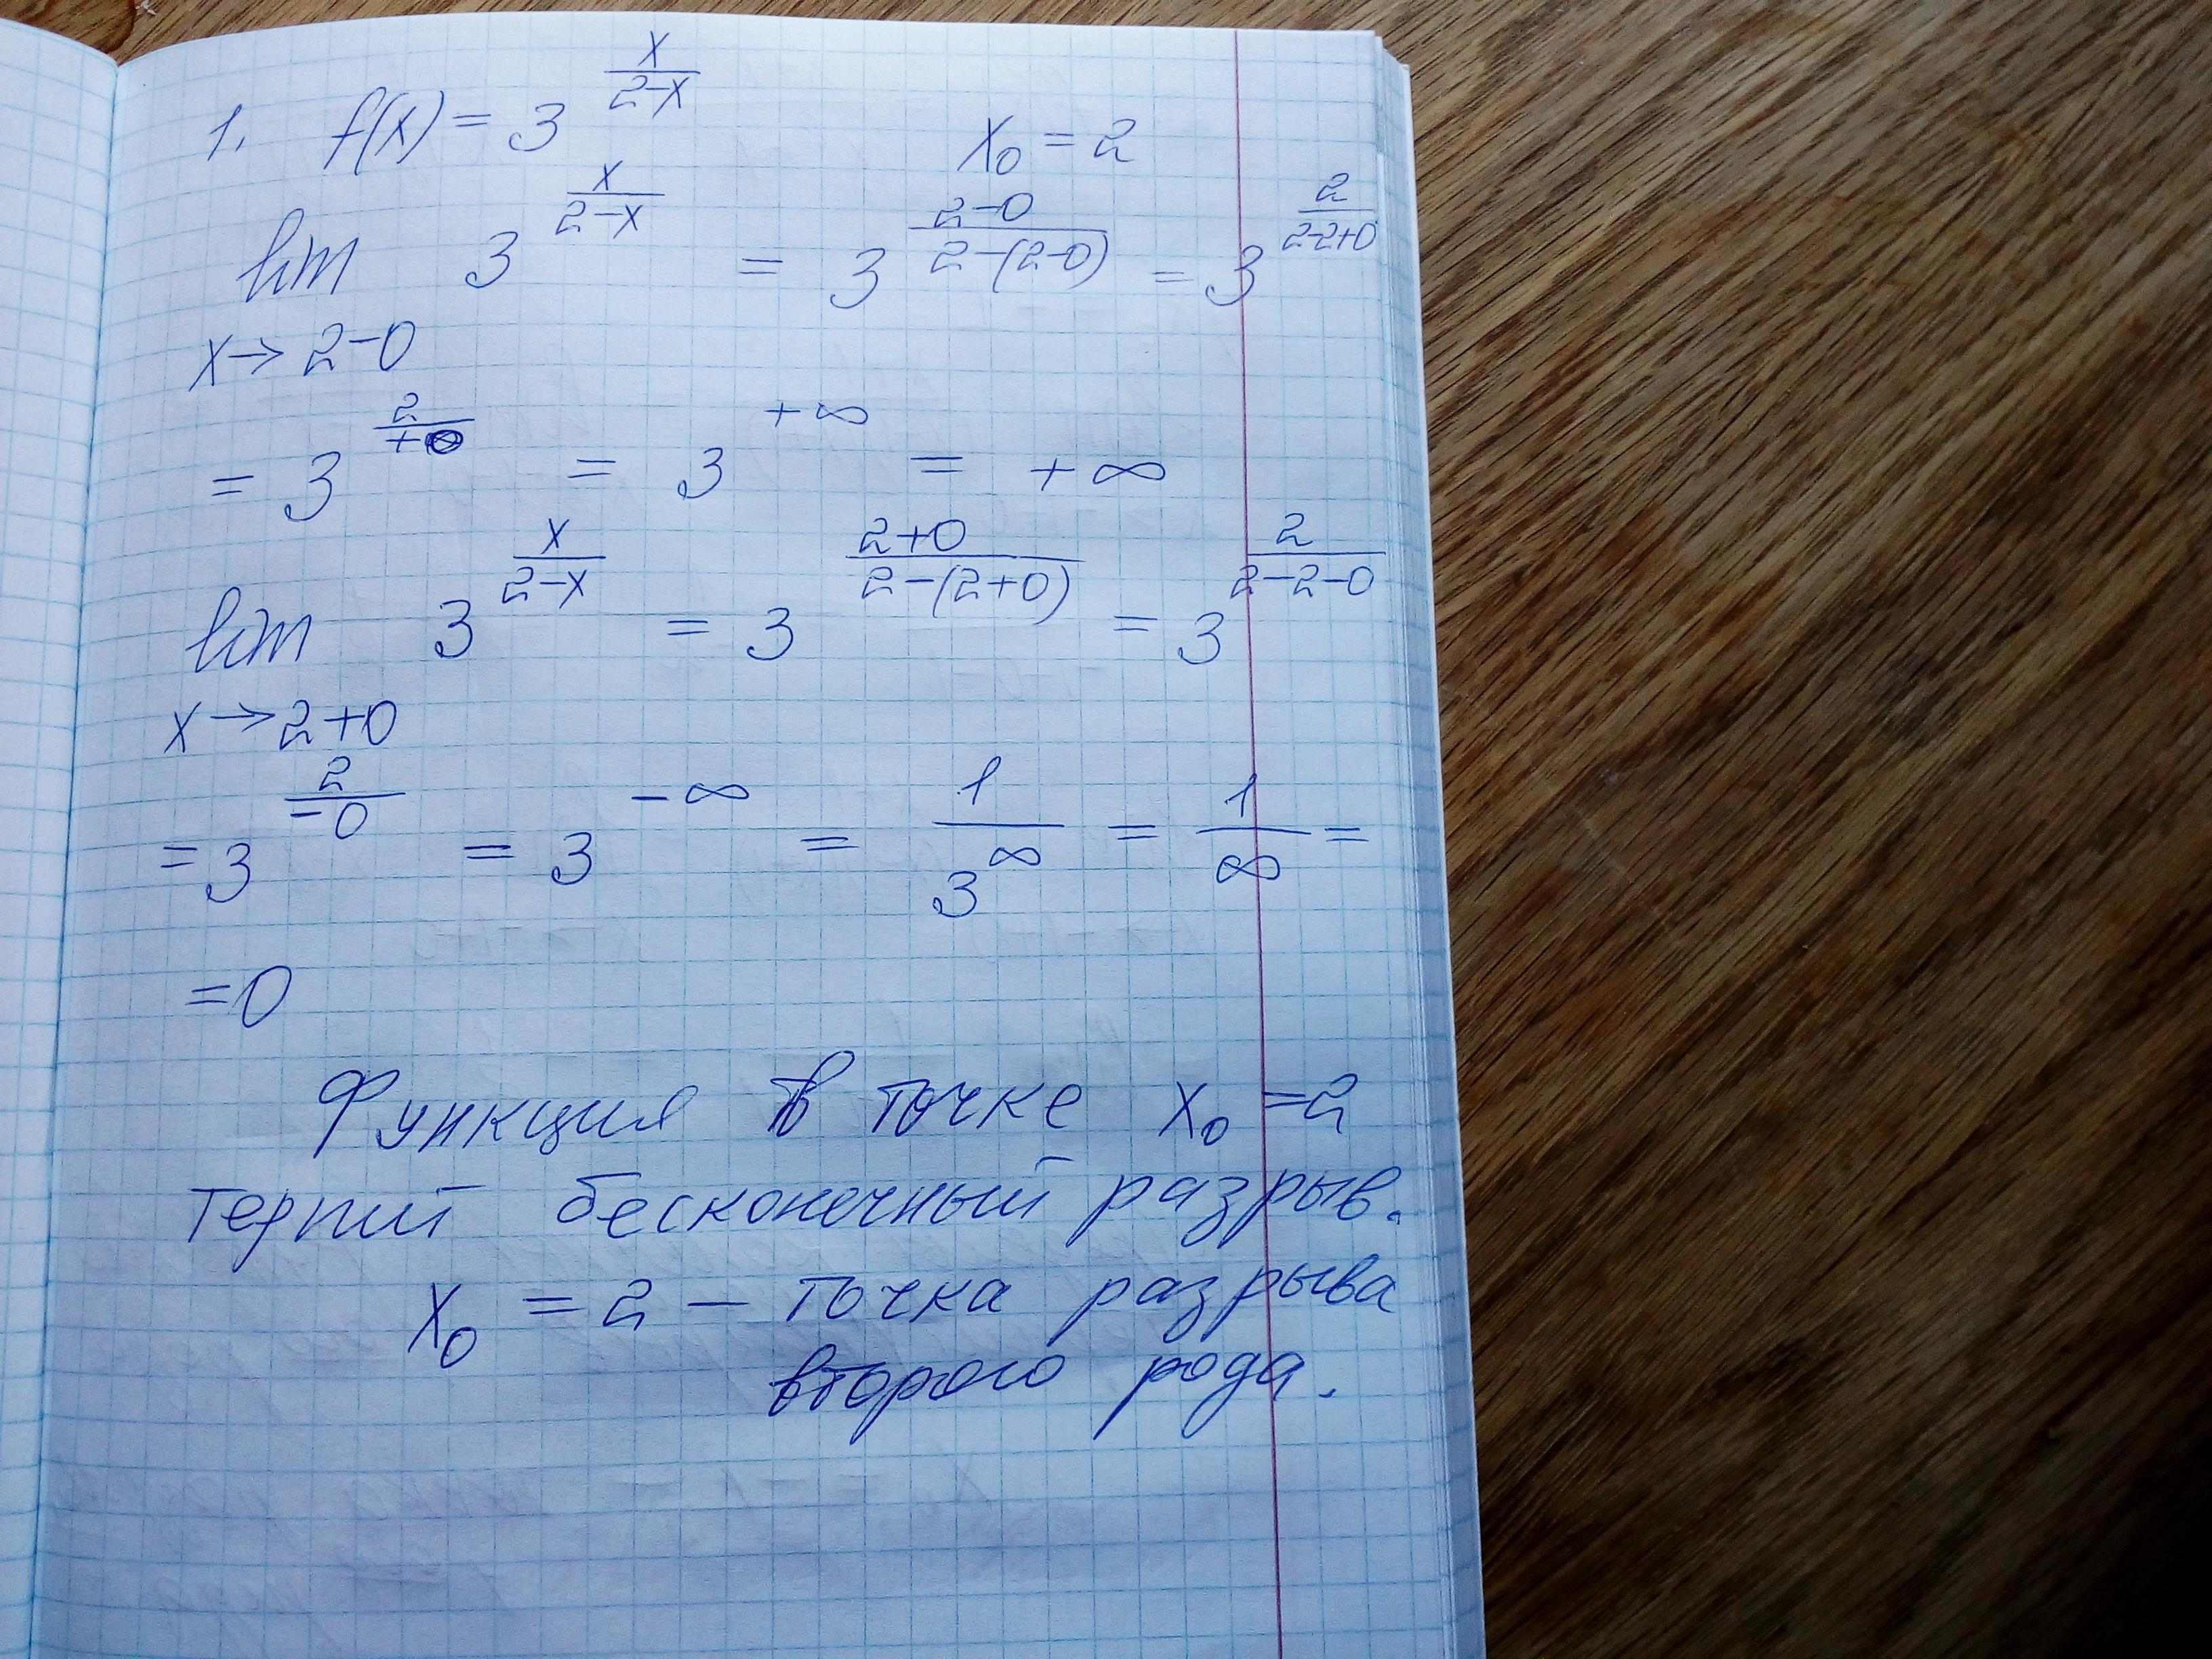 1. f(x) = 3^(x/(2-x))    x₀ = 2
lim 3^(x/(2-x)) = 3^((2-0)/(2-(2-0))) = 3^(2/(2-2+0))
x→2-0
= 3^(2/+0) = 3^(+∞) = +∞
lim 3^(x/(2-x)) = 3^((2+0)/(2-(2+0))) = 3^(2/(2-2-0))
x→2+0
= 3^(2/-0) = 3^(-∞) = 1/3^∞ = 1/∞ =
= 0
Функция в точке x₀ = 2
терпит бесконечный разрыв.
x₀ = 2 – точка разрыва
второго рода.